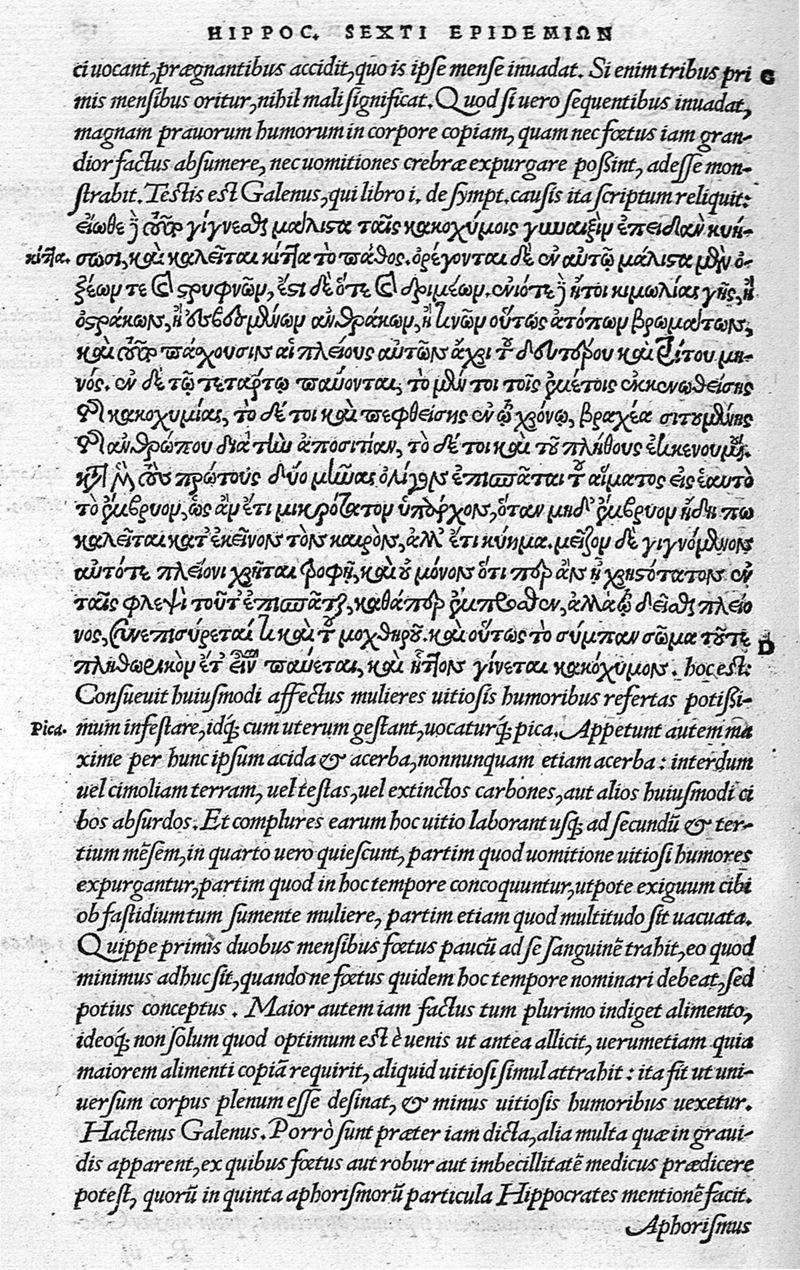 HIPPOC. SEXTI EPIDEMIΩN
ci uocant, prægnantibus accidit, quo is ipse mense inuadat. Si enim tribus pri G
mis mensibus oritur, nihil mali significat. Quod si uero sequentibus inuadat,
magnam prauorum humorum in corpore copiam, quam nec fœtus iam gran-
dior factus absumere, nec uomitiones crebræ expurgare possint, adesse mon-
strabit. Testis est Galenus, qui libro i. de sympt. causis ita scriptum reliquit:
εἴωθε γίγνεσθαι μάλιστα ταῖς κακοχύμοις γυναιξὶν ἐπειδὰν κυή-
κίτ]α. σωσι, καὶ καλεῖται κίτ]α τὸ πάθος. ὀρέγονται δὲ ἐν αὐτῷ μάλιστα μὲν ὀ-
ξέων τε καὶ στρυφνῶν, ἔστι δὲ ὅτε καὶ δριμέων. ἐνιότε ἤτοι κιμωλίας γῆς, ἢ
ὀστράκων, ἢ σβεννυμένων ἀνθράκων, ἤ τινων οὕτως ἀτόπων βρωμάτων,
καὶ πάχουσιν αἱ πλείους αὐτῶν ἄχρι τοῦ δευτέρου καὶ τρίτου μη-
νός. ἐν δὲ τῷ τετάρτῳ παύονται, τὸ μέν τοι τοῖς ἐμέτοις ἐκκενωθείσης
τῆς κακοχυμίας, τὸ δέ τοι καὶ πεφθείσης ἐν τῷ χρόνῳ, βραχέα σιτουμένης
τῆς ἀνθρώπου διὰ τὴν ἀποσιτίαν, τὸ δέ τοι καὶ τοῦ πλήθους
πρώτους δύο μῆνας ὀλίγον ἐπισπᾶται τοῦ αἵματος εἰς ἑαυτὸ
τὸ ἔμβρυον, ὡς ἂν ἔτι μικρότατον ὑπάρχον, ὅταν μηδ' ἔμβρυον ἤδη πω
καλεῖται κατ' ἐκεῖνον τὸν καιρὸν, ἀλλ' ἔτι κύημα. μεῖζον δὲ γιγνόμενον
αὐτότε πλείονι χρῆται τροφῇ, καὶ οὐ μόνον ὅτι περ ἂν ᾖ χρηστότατον ἐν
ταῖς φλεψὶ τοῦτ' ἐπισπᾶται, καθάπερ ἔμπροσθεν, ἀλλὰ τῷ δεῖσθαι πλείο
νος, συνεπισύρεταί τι καὶ τοῦ μοχθηροῦ. καὶ οὕτως τὸ σύμπαν σῶμα τοῦτε
πληθωρικὸν ἔτ' εἶναι παύεται, καὶ ἧττον γίνεται κακόχυμον. hoc est: D
Consueuit huiusmodi affectus mulieres uitiosis humoribus refertas potissi-
Pica. mum infestare, idq́; cum uterum gestant, uocaturq́; pica. Appetunt autem ma
xime per hunc ipsum acida & acerba, nonnunquam etiam acerba: interdum
uel cimoliam terram, uel testas, uel extinctos carbones, aut alios huiusmodi ci
bos absurdos. Et complures earum hoc uitio laborant usq́; ad secundũ & ter-
tium mẽsem, in quarto uero quiescunt, partim quod uomitione uitiosi humores
expurgantur, partim quod in hoc tempore concoquuntur, utpote exiguum cibi
ob fastidium tum sumente muliere, partim etiam quod multitudo sit uacuata.
Quippe primis duobus mensibus fœtus paucũ ad se sanguinẽ trahit, eo quod
minimus adhuc sit, quando ne fœtus quidem hoc tempore nominari debeat, sed
potius conceptus. Maior autem iam factus tum plurimo indiget alimento,
ideoq́; non solum quod optimum est è uenis ut antea allicit, uerumetiam quia
maiorem alimenti copiã requirit, aliquid uitiosi simul attrahit: ita fit ut uni-
uersum corpus plenum esse desinat, & minus uitiosis humoribus uexetur.
Hactenus Galenus. Porrò sunt præter iam dicta, alia multa quæ in graui-
dis apparent, ex quibus fœtus aut robur aut imbecillitatẽ medicus prædicere
potest, quorũ in quinta aphorismorũ particula Hippocrates mentionẽ facit.
Aphorismus